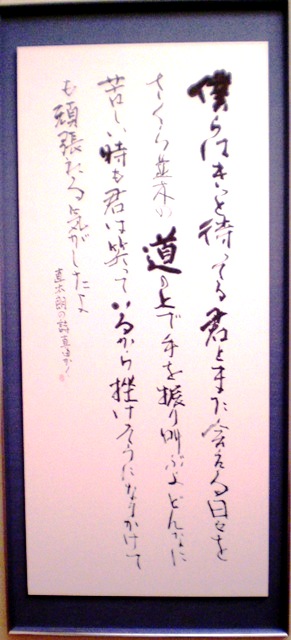 僕らはきっと待ってる君とまた会える日々を
さくら並木の道の上で手を振り叫ぶよどんなに
苦しい時も君は笑っているから挫けそうになりかけて
も頑張れる気がしたよ
直太朗の詩